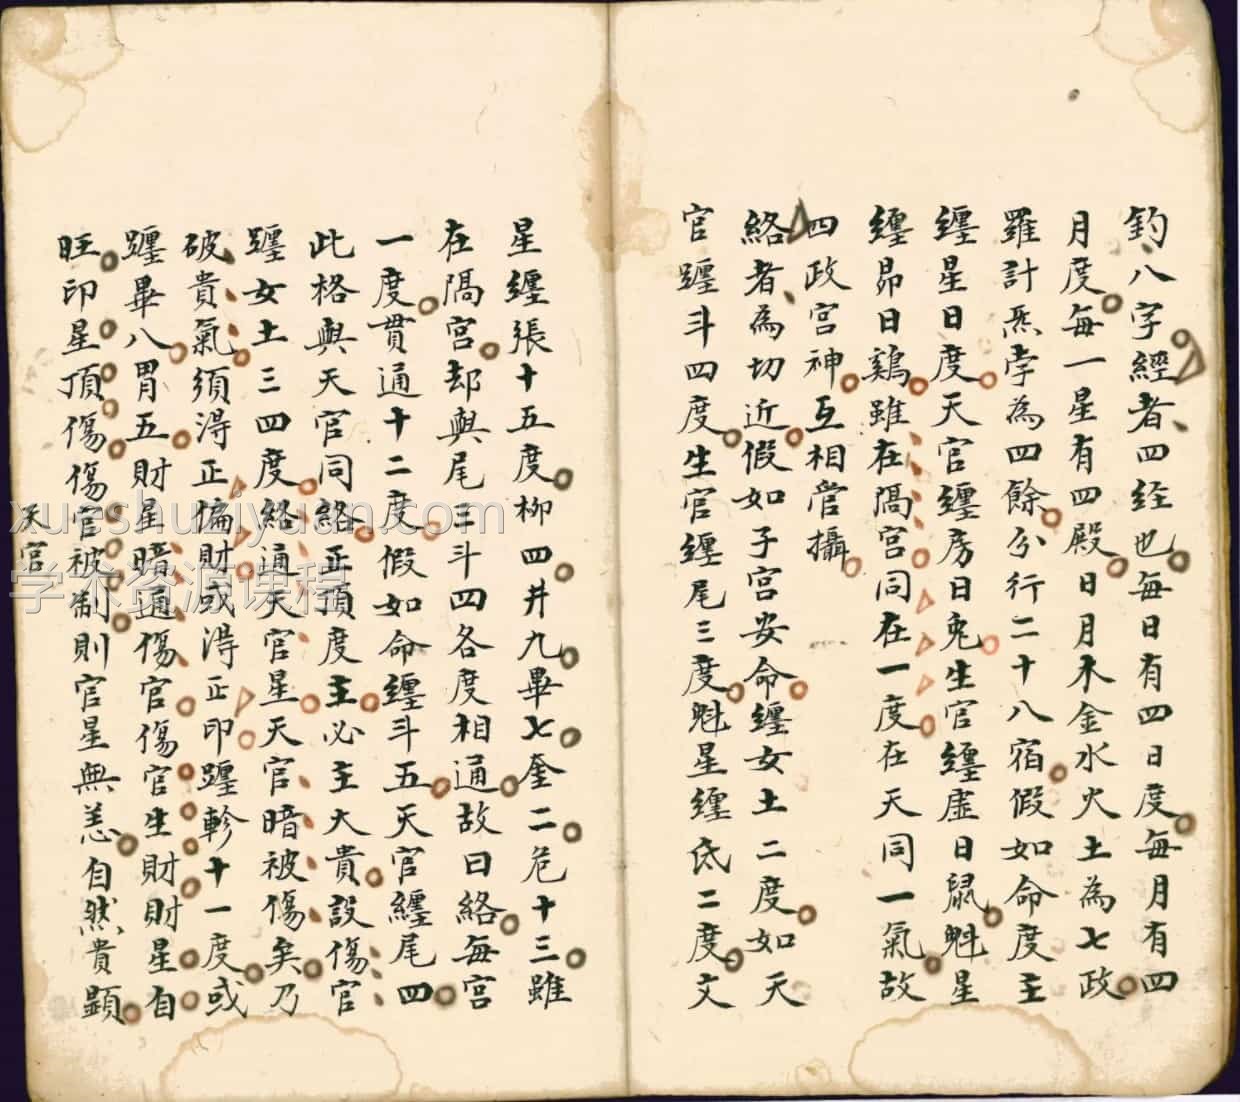 釣八字經者四经也每日有四日度每月有四
月度每一星有四殿日月木金水火土為七政
羅計炁孛為四餘分行二十八宿假如命度主
纏星日度天官纏房日兎生官纏虚日鼠魁星
纏昴日鷄雖在隔宫同在一度在天同一氣故
四政宫神互相管攝
絡者為切近假如子宫安命纏女土二度如天
官躔斗四度生官纏尾三度魁星纏氐二度文
星纏張十五度柳四井九畢七奎二危十三雖
在隔宫却與尾三斗四各度相通故曰絡每宫
一度貫通十二度假如命纏斗五天官纏尾四
此格與天官同絡正頂度主必主大貴設傷官
躔女土三四度絡通天官星天官暗被傷矣乃
破貴氣須淂正偏財或淂正印躔軫十一度或
躔畢八胃五財星暗通傷官傷官生財財星自
旺印星頂傷傷官被制則官星無恙自然貴顯
天官
xueshuziyuan.com
学术资源课程